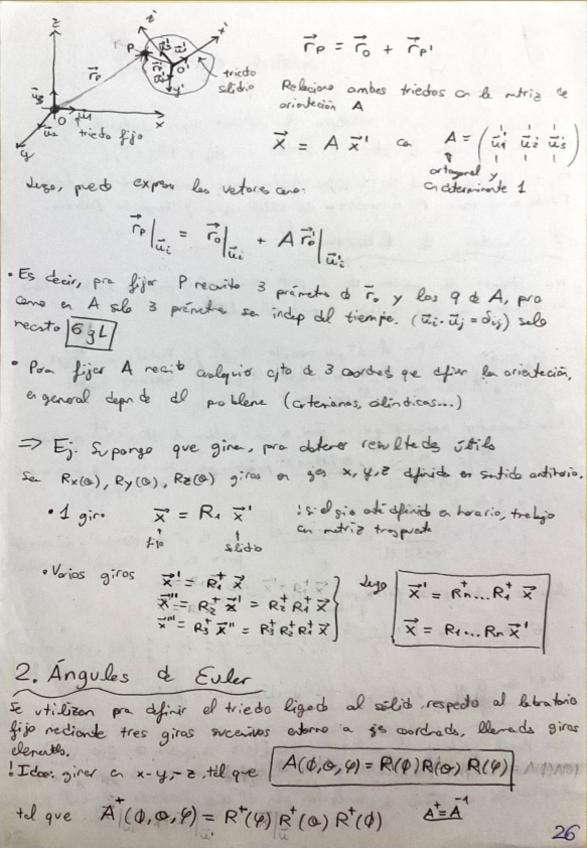 z
z'
x'
P
r⃗p'
O'
y'
triedo
sólidio
r⃗p
u⃗3
O
u⃗1
x
u⃗2
triedo fijo
y
r⃗p = r⃗o + r⃗p'
Relaciono ambos triedos con la matriz de
orientación A
x⃗ = A x⃗' con A = (u⃗1' u⃗2' u⃗3')
ortogonal y
con determinante 1
Luego, puedo expresar los vectores como:
r⃗p|u⃗i = r⃗o|u⃗i + A r⃗o'|u⃗i'
• Es decir, pra fijar P necesito 3 prámetros de r⃗o y los 9 de A, pero
como en A solo 3 prámetros son indep del tiempo. (u⃗i · u⃗j = δij) solo
necesito 6 gL
• Para fijar A necesito cualquier cjto de 3 coordnds que dfinan la orientación,
en general depnde dl problema (cartesianas, cilíndricas...)
⇒ Ej. Supongo que giran, pra obtener resultados útiles
Sea Rx(θ), Ry(θ), Rz(θ) giros en ejes x, y, z definidos en sentido antihorario.
• 1 giro x⃗ = R1 x⃗' ! si el giro está dfinido en horario, trabajo
con matriz traspuesta
fijo
sólidio
• Varios giros x⃗' = R1⁺ x⃗
x⃗'' = R2⁺ x⃗' = R2⁺ R1⁺ x⃗
x⃗''' = R3⁺ x⃗'' = R3⁺ R2⁺ R1⁺ x⃗
luego
x⃗' = Rn⁺ ... R1⁺ x⃗
x⃗ = R1 ... Rn x⃗'
2. Ángulos de Euler
Se utilizan pra dfinir el triedo ligado al sólido respecto al laboratorio
fijo mediante tres giros sucesivos entorno a ejes coordnados, llamados giros
elementales.
! Idea: girar en x-y-z, tal que A(ϕ,θ,φ) = R(ϕ) R(θ) R(φ)
tal que A⁺(ϕ,θ,φ) = R⁺(φ) R⁺(θ) R⁺(ϕ) A⁺=A⁻¹
26